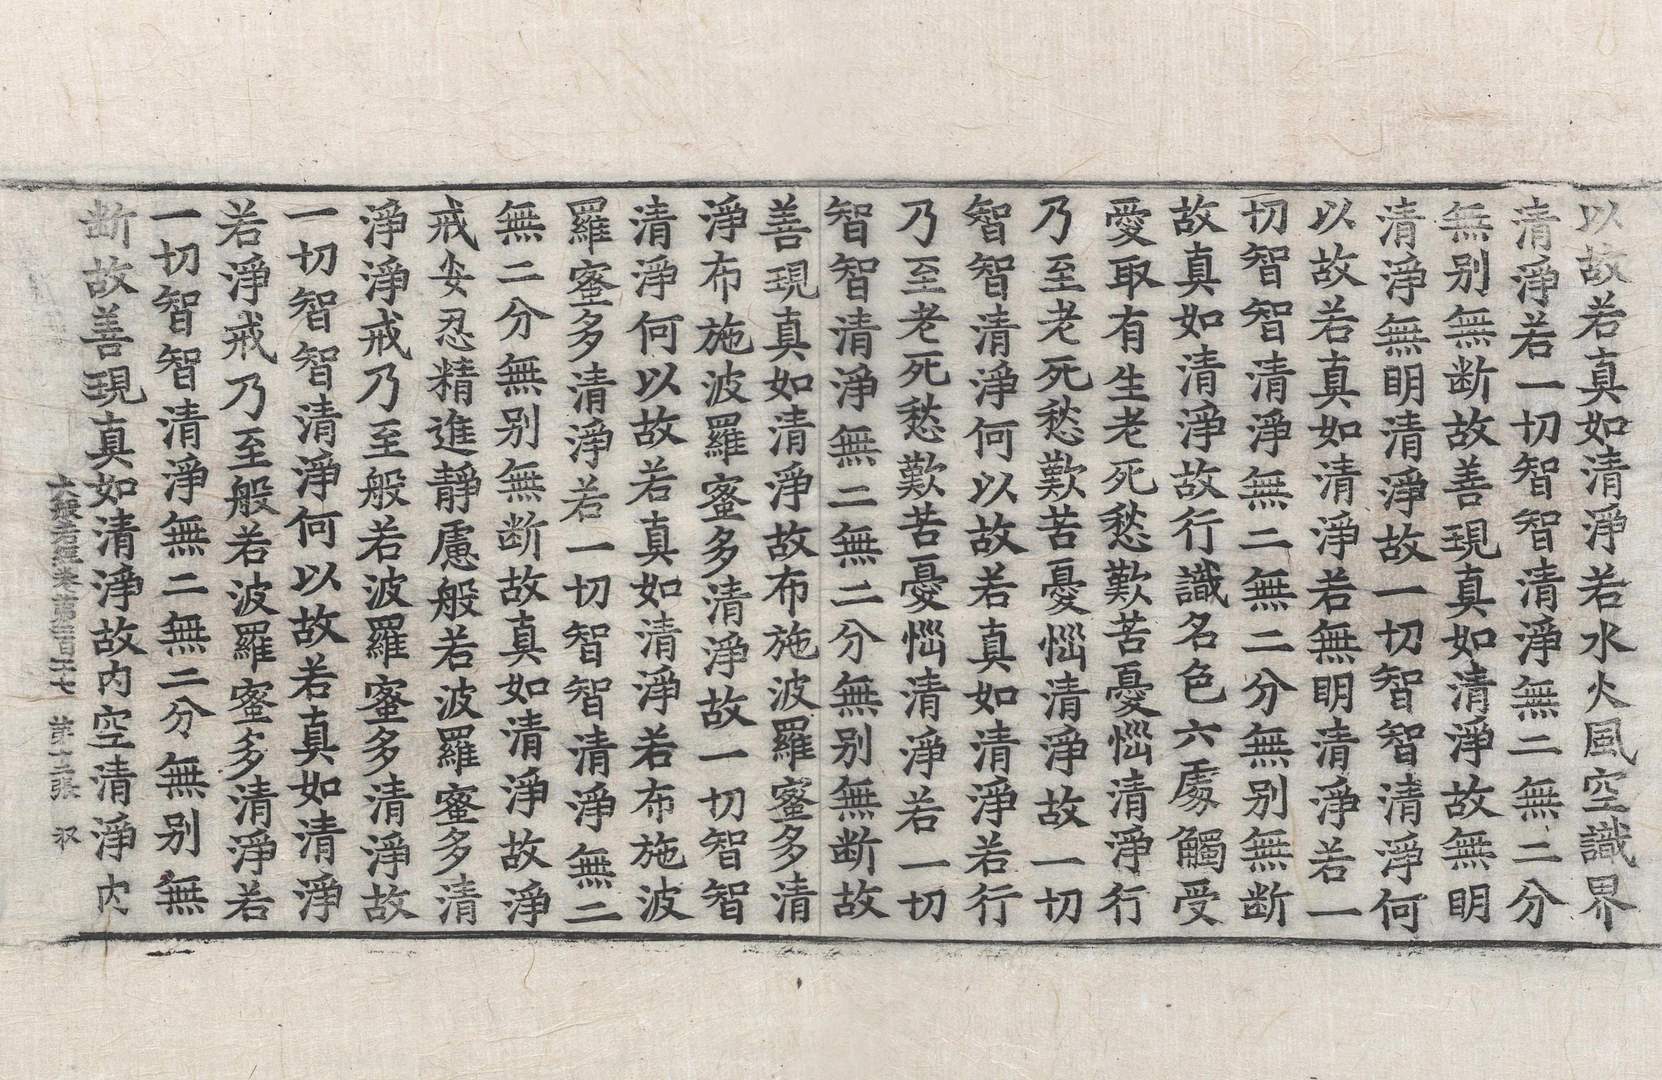 以故若真如清淨若水火風空識界
清淨若一切智智清淨無二無二分
無别無断故善現真如清淨故無明
清淨無明清淨故一切智智清淨何
以故若真如清淨若無明清淨若一
切智智清淨無二無二分無别無断
故真如清淨故行識名色六處觸受
愛取有生老死愁歎苦憂惱清淨行
乃至老死愁歎苦憂惱清淨故一切
智智清淨何以故若真如清淨若行
乃至老死愁歎苦憂惱清淨若一切
智智清淨無二無二分無别無断故
善現真如清淨故布施波羅蜜多清
淨布施波羅蜜多清淨故一切智智
清淨何以故若真如清淨若布施波
羅蜜多清淨若一切智智清淨無二
無二分無别無断故真如清淨故淨
戒安忍精進靜慮般若波羅蜜多清
淨淨戒乃至般若波羅蜜多清淨故
一切智智清淨何以故若真如清淨
若淨戒乃至般若波羅蜜多清淨若
一切智智清淨無二無二分無别無
断故善現真如清淨故内空清淨内
大般若經卷第 第 張